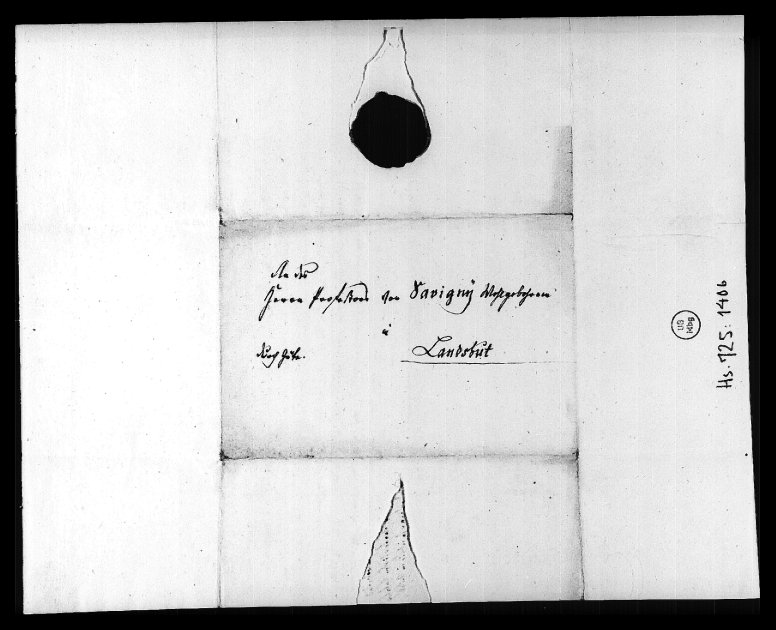 An des
Herrn Professors von Savigny Wohlgebohren
à
Landshut
durch Güte.
UB
Mbg
Hs. 725: 1406